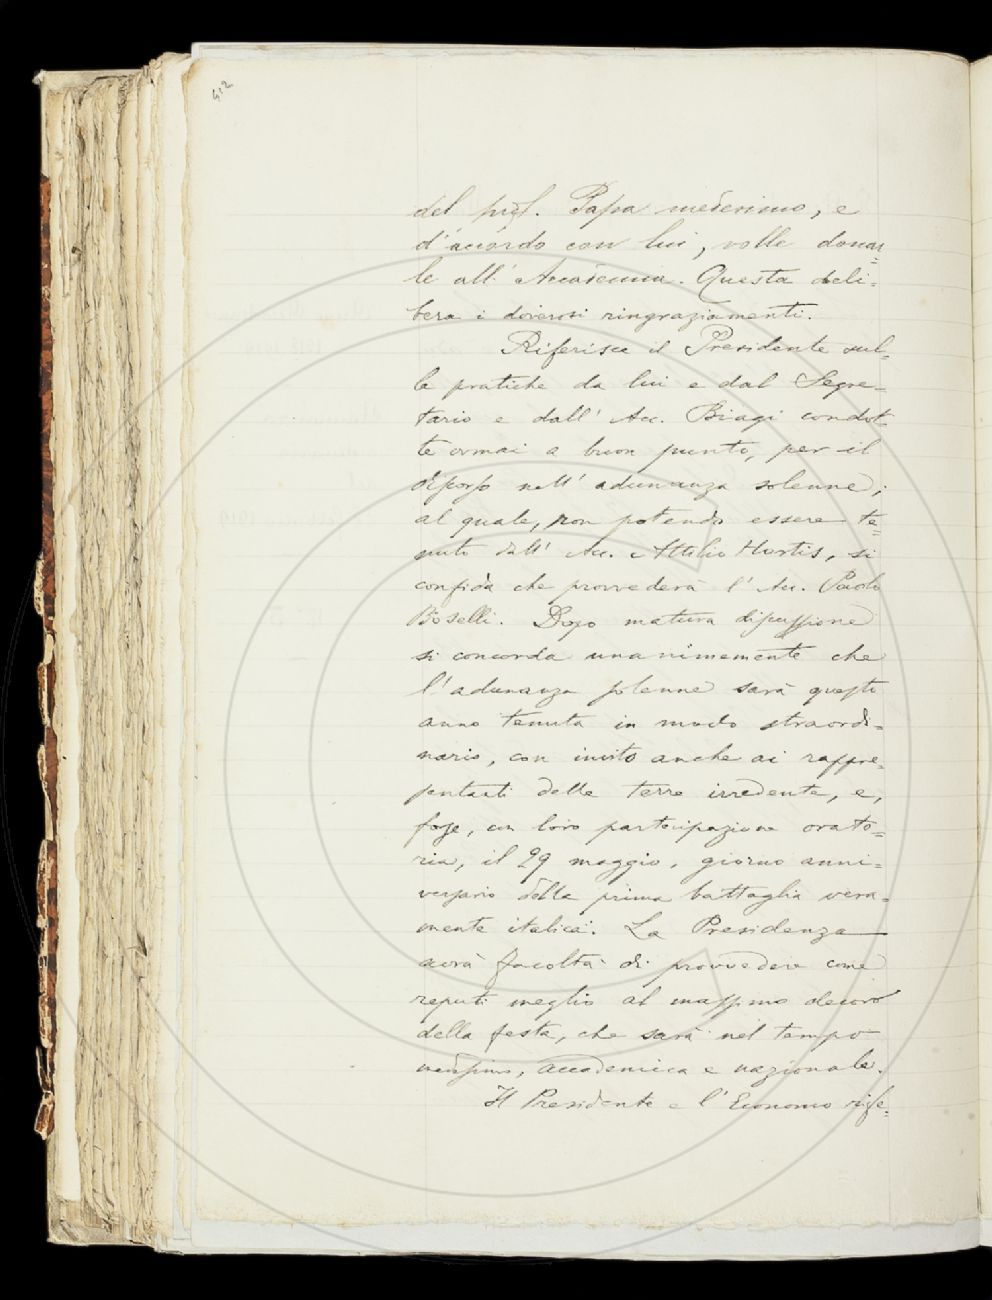 412
del prof. Papa medesimo, e
d'accordo con lui, volle donar=
le all'Accademia. Questa deli=
bera i doverosi ringraziamenti.
Riferisce il Presidente sul=
le pratiche da lui e dal Segre=
tario e dall'Acc. Biagi condot=
te ormai a buon punto, per il
discorso nell'adunanza solenne;
al quale, non potendo essere te=
nuto dall'Acc. Attilio Hortis, si
confida che provvederà l'Acc. Paolo
Boselli. Dopo matura discussione
si concorda unanimemente che
l'adunanza solenne sarà questo
anno tenuta in modo straordi=
nario, con invito anche ai rappre=
sentanti delle terre irredente, e,
forse, con loro partecipazione orato=
ria, il 29 maggio, giorno anni=
versario della prima battaglia vera=
mente italica. La Presidenza
avrà facoltà di provvedere come
reputi meglio al massimo decoro
della festa, che sarà nel tempo
medesimo, accademica e nazionale.
Il Presidente e l'Economo rife=